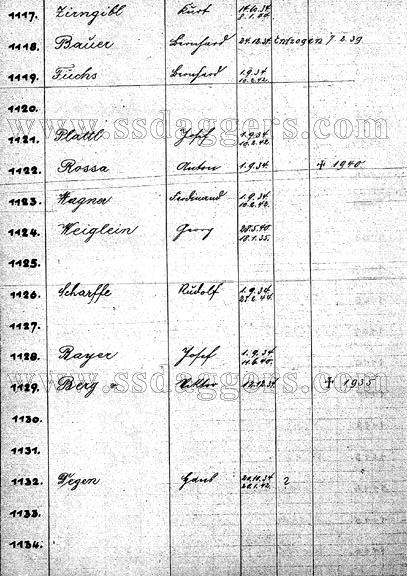 1117. Zirngibl Kurt 14.10.34. 8.1.44.
1118. Bauer Bernhard 24.12.34. Entzogen 7.2.39
1119. Fuchs Bernhard 1.9.34. 10.2.42.
1120.
www.ssdaggers.com www.ssdaggers.com
1121. Plattl Josef 1.9.34. 10.2.42.
1122. Rossa Anton 1.9.34. ✝ 1940
1123. Wagner Ferdinand 1.9.34. 10.2.42.
1124. Weiglein Georg 28.5.40. 18.1.35.
1125.
1126. Scharffe Rudolf 1.9.34. 27.2.44.
1127.
1128. Rayer Josef 1.9.34. 11.6.40.
1129. Berg v. Viktor 12.12.34. ✝ 1935
www.ssdaggers.com www.ssdaggers.com
1130.
1131.
1132. Degen Hans 20.10.34. 20.1.42. ?
1133.
1134.